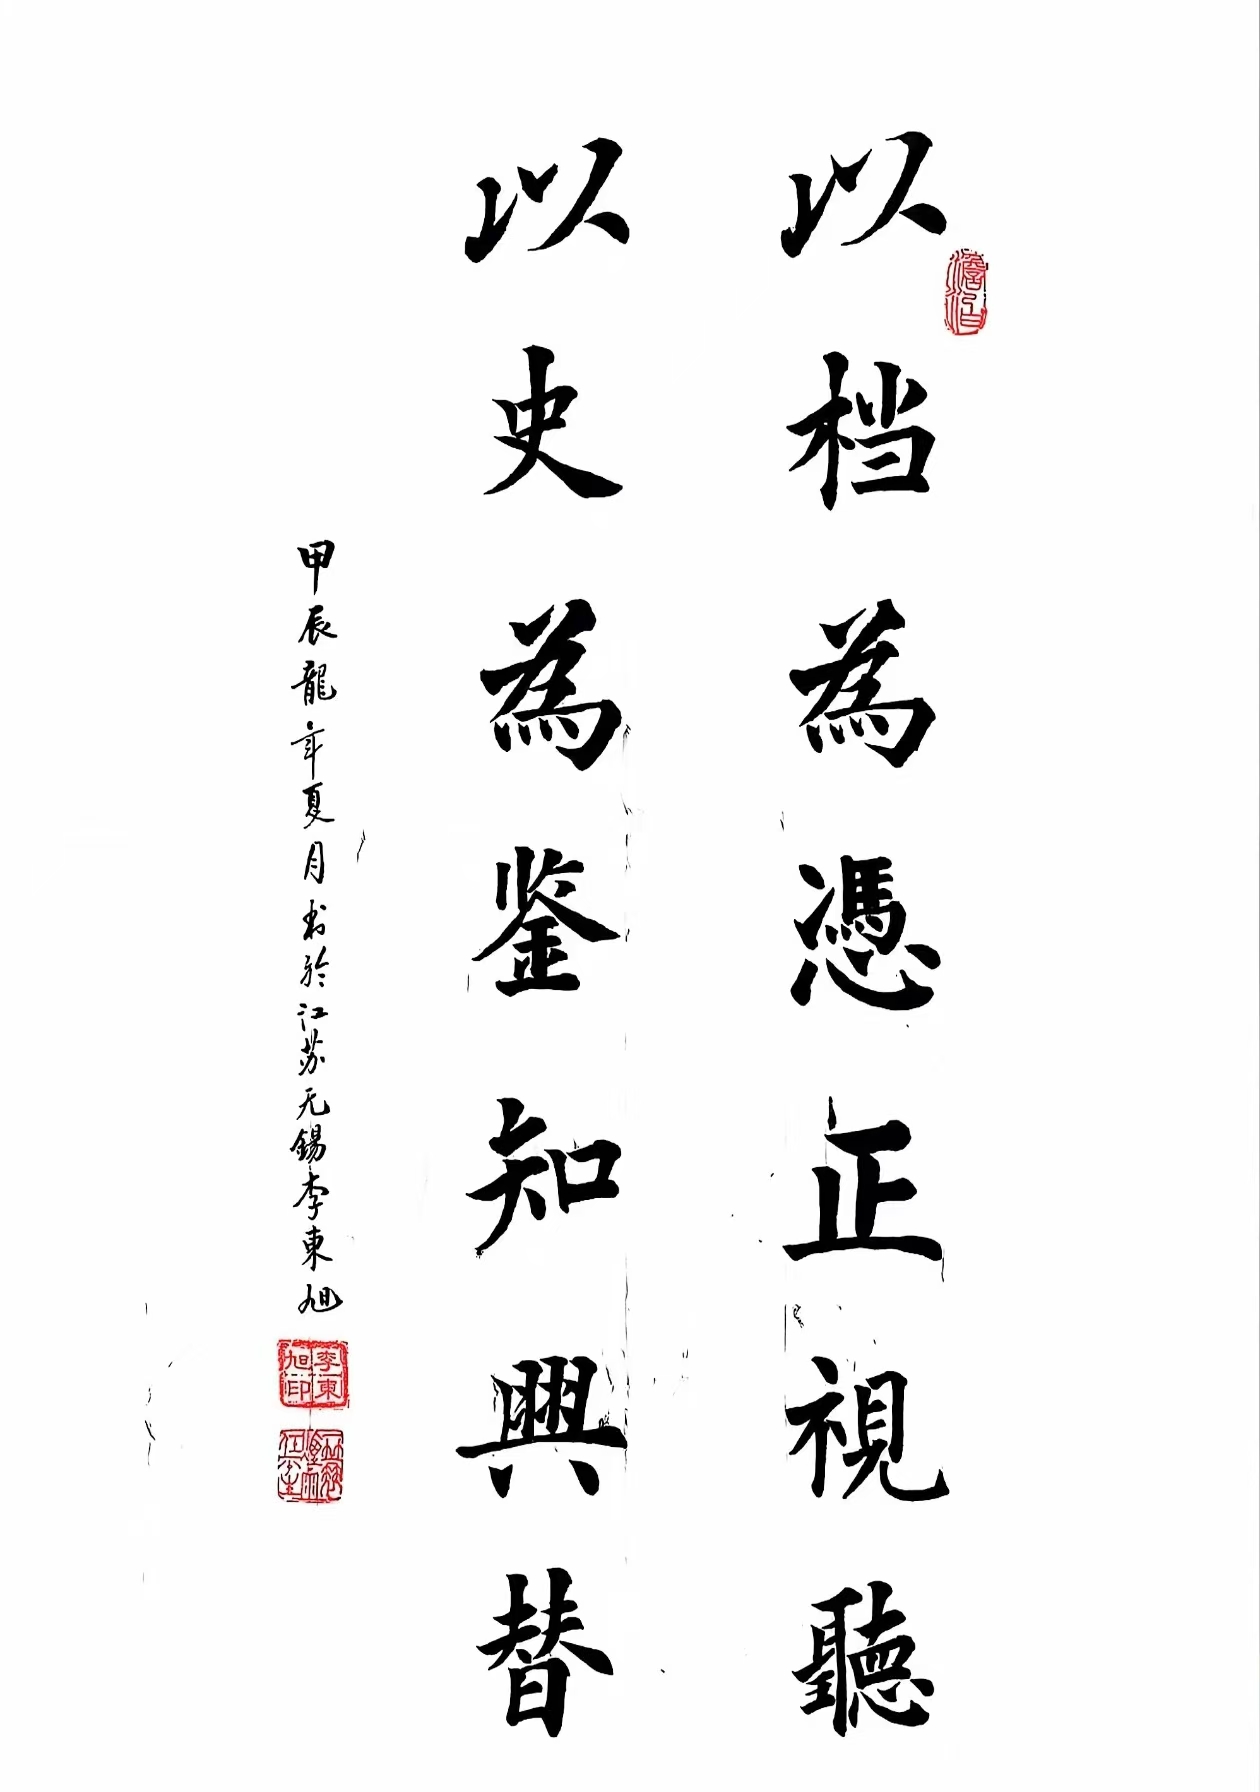 以档為憑正視聽
以史為鉴知興替
甲辰龍年夏月书於江苏无錫李東旭
李東旭印